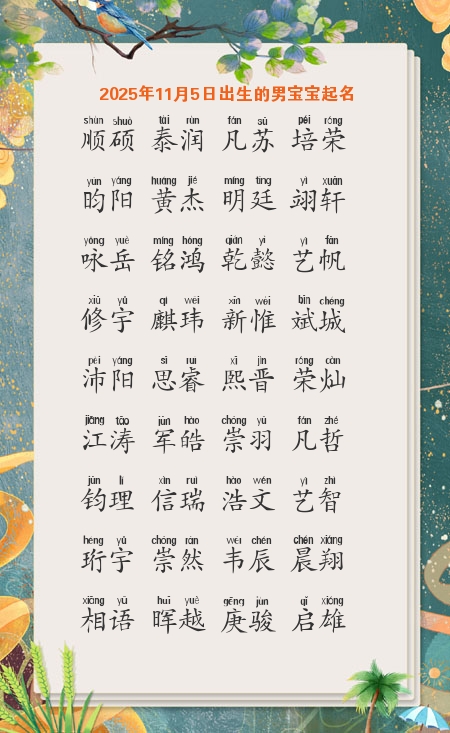 2025年11月5日出生的男宝宝起名
shùn shuò tài rùn fán sū péi róng
顺硕 泰润 凡苏 培荣
yún yáng huáng jié míng tíng yì xuān
昀阳 黄杰 明廷 翊轩
yǒng yuè míng hóng qián yì yì fān
咏岳 铭鸿 乾懿 艺帆
xiū yǔ qí wěi xīn wéi bīn chéng
修宇 麒玮 新惟 斌城
pèi yáng sī ruì xī jìn róng càn
沛阳 思睿 熙晋 荣灿
jiāng tāo jūn hào chóng yǔ fán zhé
江涛 军皓 崇羽 凡哲
jūn lǐ xìn ruì hào wén yì zhì
钧理 信瑞 浩文 艺智
héng yǔ chóng rán wéi chén chén xiáng
珩宇 崇然 韦辰 晨翔
xiāng yǔ huī yuè gēng jùn qǐ xióng
相语 晖越 庚骏 启雄